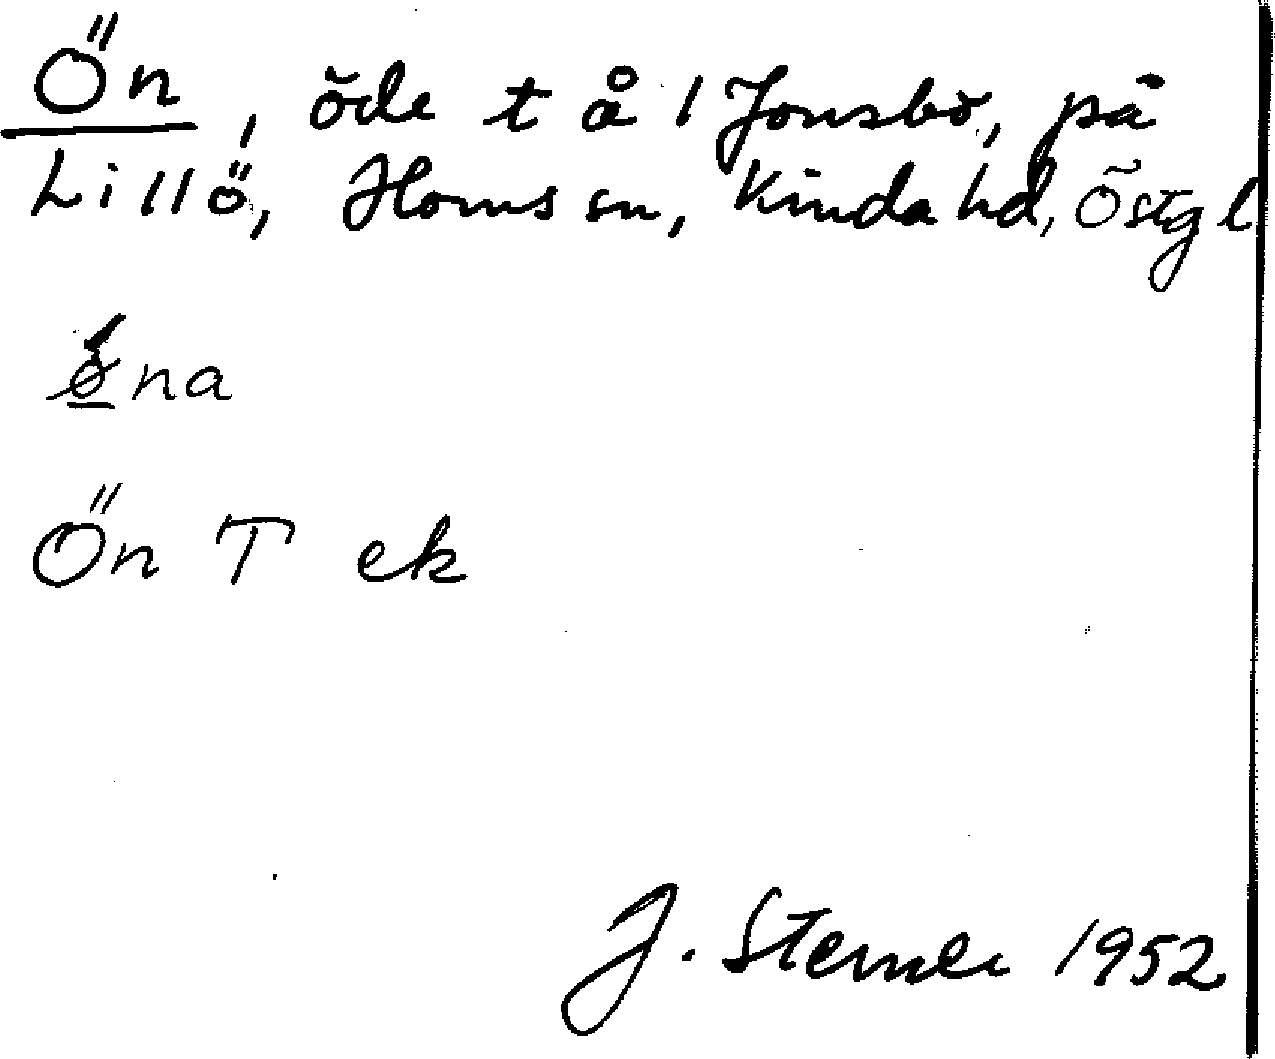 Ön, öde t å 1 Jonsbo, på
Lillö, Horns sn, Kinda hd, Östgl
na
Ön T ek
J. Sterner 1952